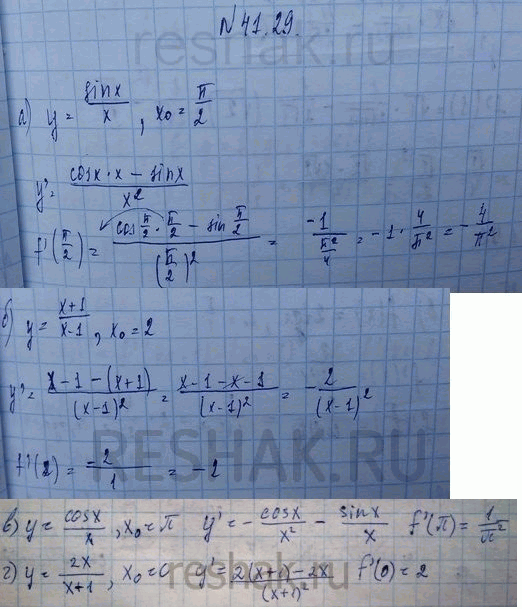 №41.29.
reshak.ru
а) y = sinx/x , x₀ = π/2
y' = (cosx·x − sinx)/x²
f'(π/2) = (cos π/2 · π/2 − sin π/2)/(π/2)² = −1/(π²/4) = −1·4/π² = −4/π²
б) y = (x+1)/(x-1) , x₀ = 2
y' = (x-1-(x+1))/(x-1)² = (x-1-x-1)/(x-1)² = −2/(x-1)²
RESHAK.RU
f'(2) = −2/1 = −2
в) y = cosx/x , x₀ = π y' = −cosx/x² − sinx/x f'(π) = 1/π²
г) y = 2x/(x+1) , x₀ = 0 y' = (2(x+1)-2x)/(x+1)² f'(0) = 2
reshak.ru